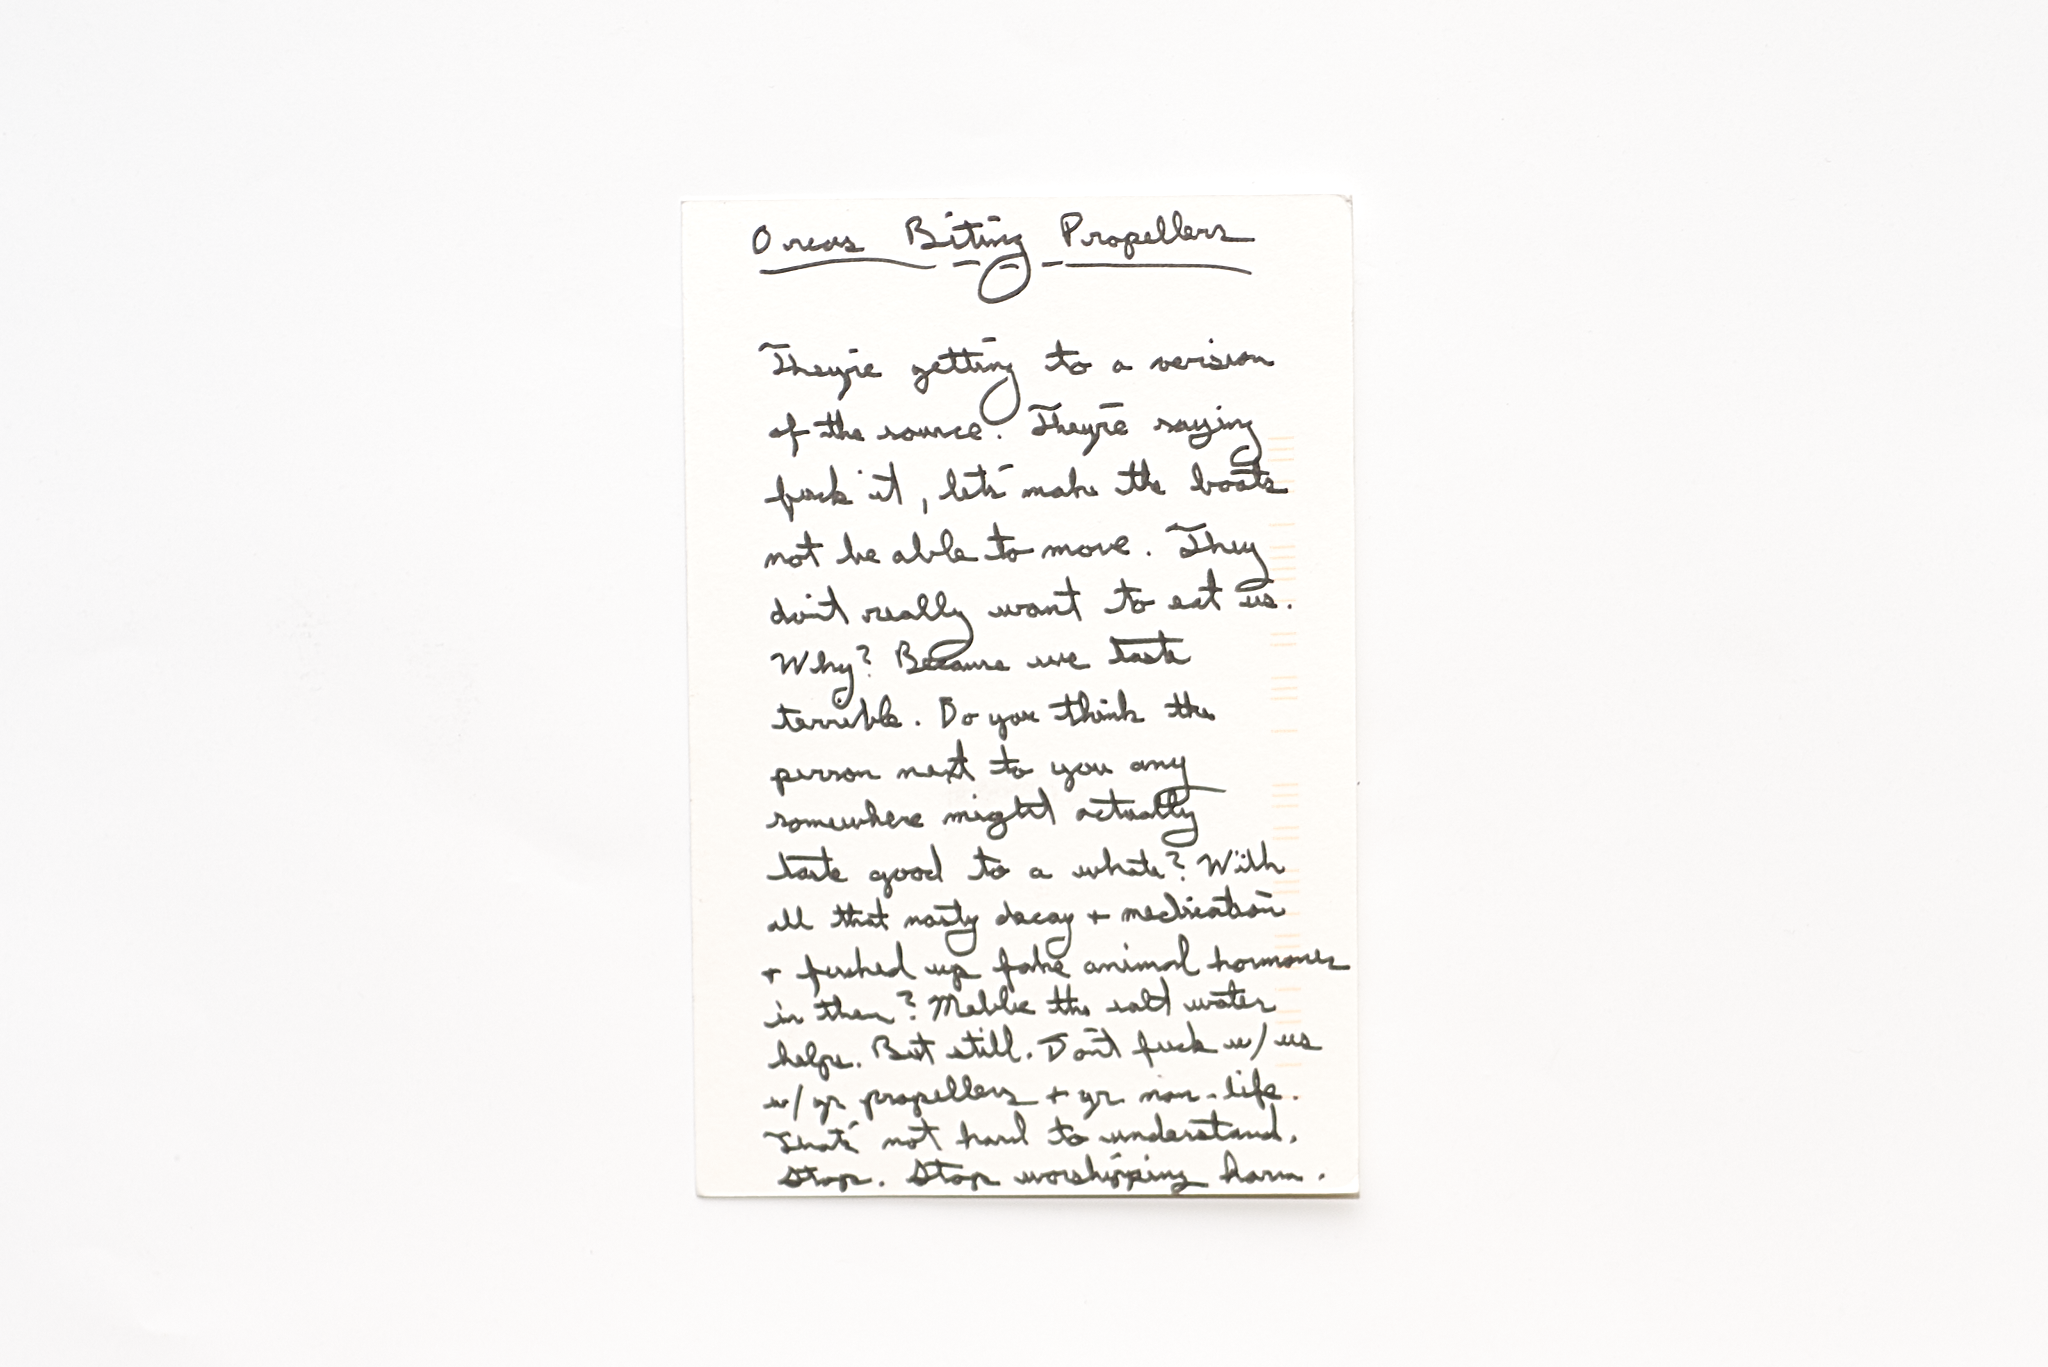 Orcas Biting Propellers
They're getting to a version
of the source. They're saying
fuck it, let's make the boats
not be able to move. They
don't really want to eat us.
Why? Because we taste
terrible. Do you think the
person next to you any
somewhere might actually
taste good to a whale? With
all that nasty decay + medication
+ fucked up fake animal hormones
in them? Mebbe the salt water
helps. But still. Don't fuck w/ us
w/ yr propellers + yr non-life.
That's not hard to understand.
Stop. Stop worshipping harm.